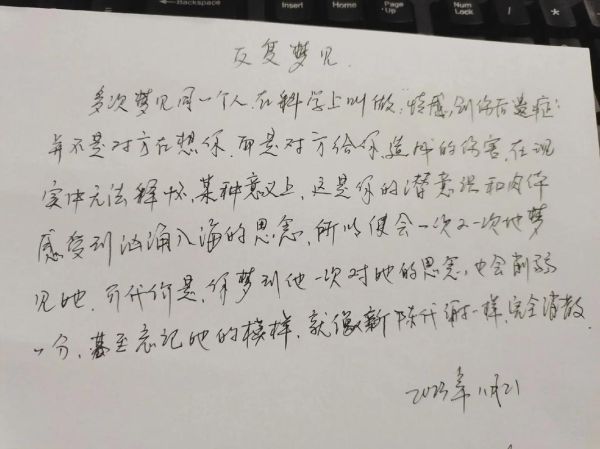 Backspace Insert Home Page Up Num Lock /
反复梦见.
多次梦见同一个人,在科学上叫做:情感创伤后遗症:
并不是对方在想你.而是对方给你造成的伤害,在现
实中无法释怀,某种意义上,这是你的潜意识和肉体
感受到汹涌入海的思念,所以便会一次又一次地梦
见她.可代价是,你梦到他一次对她的思念,也会削弱
一分,甚至忘记她的模样,就像新陈代谢一样,完全消散.
2023年11月21